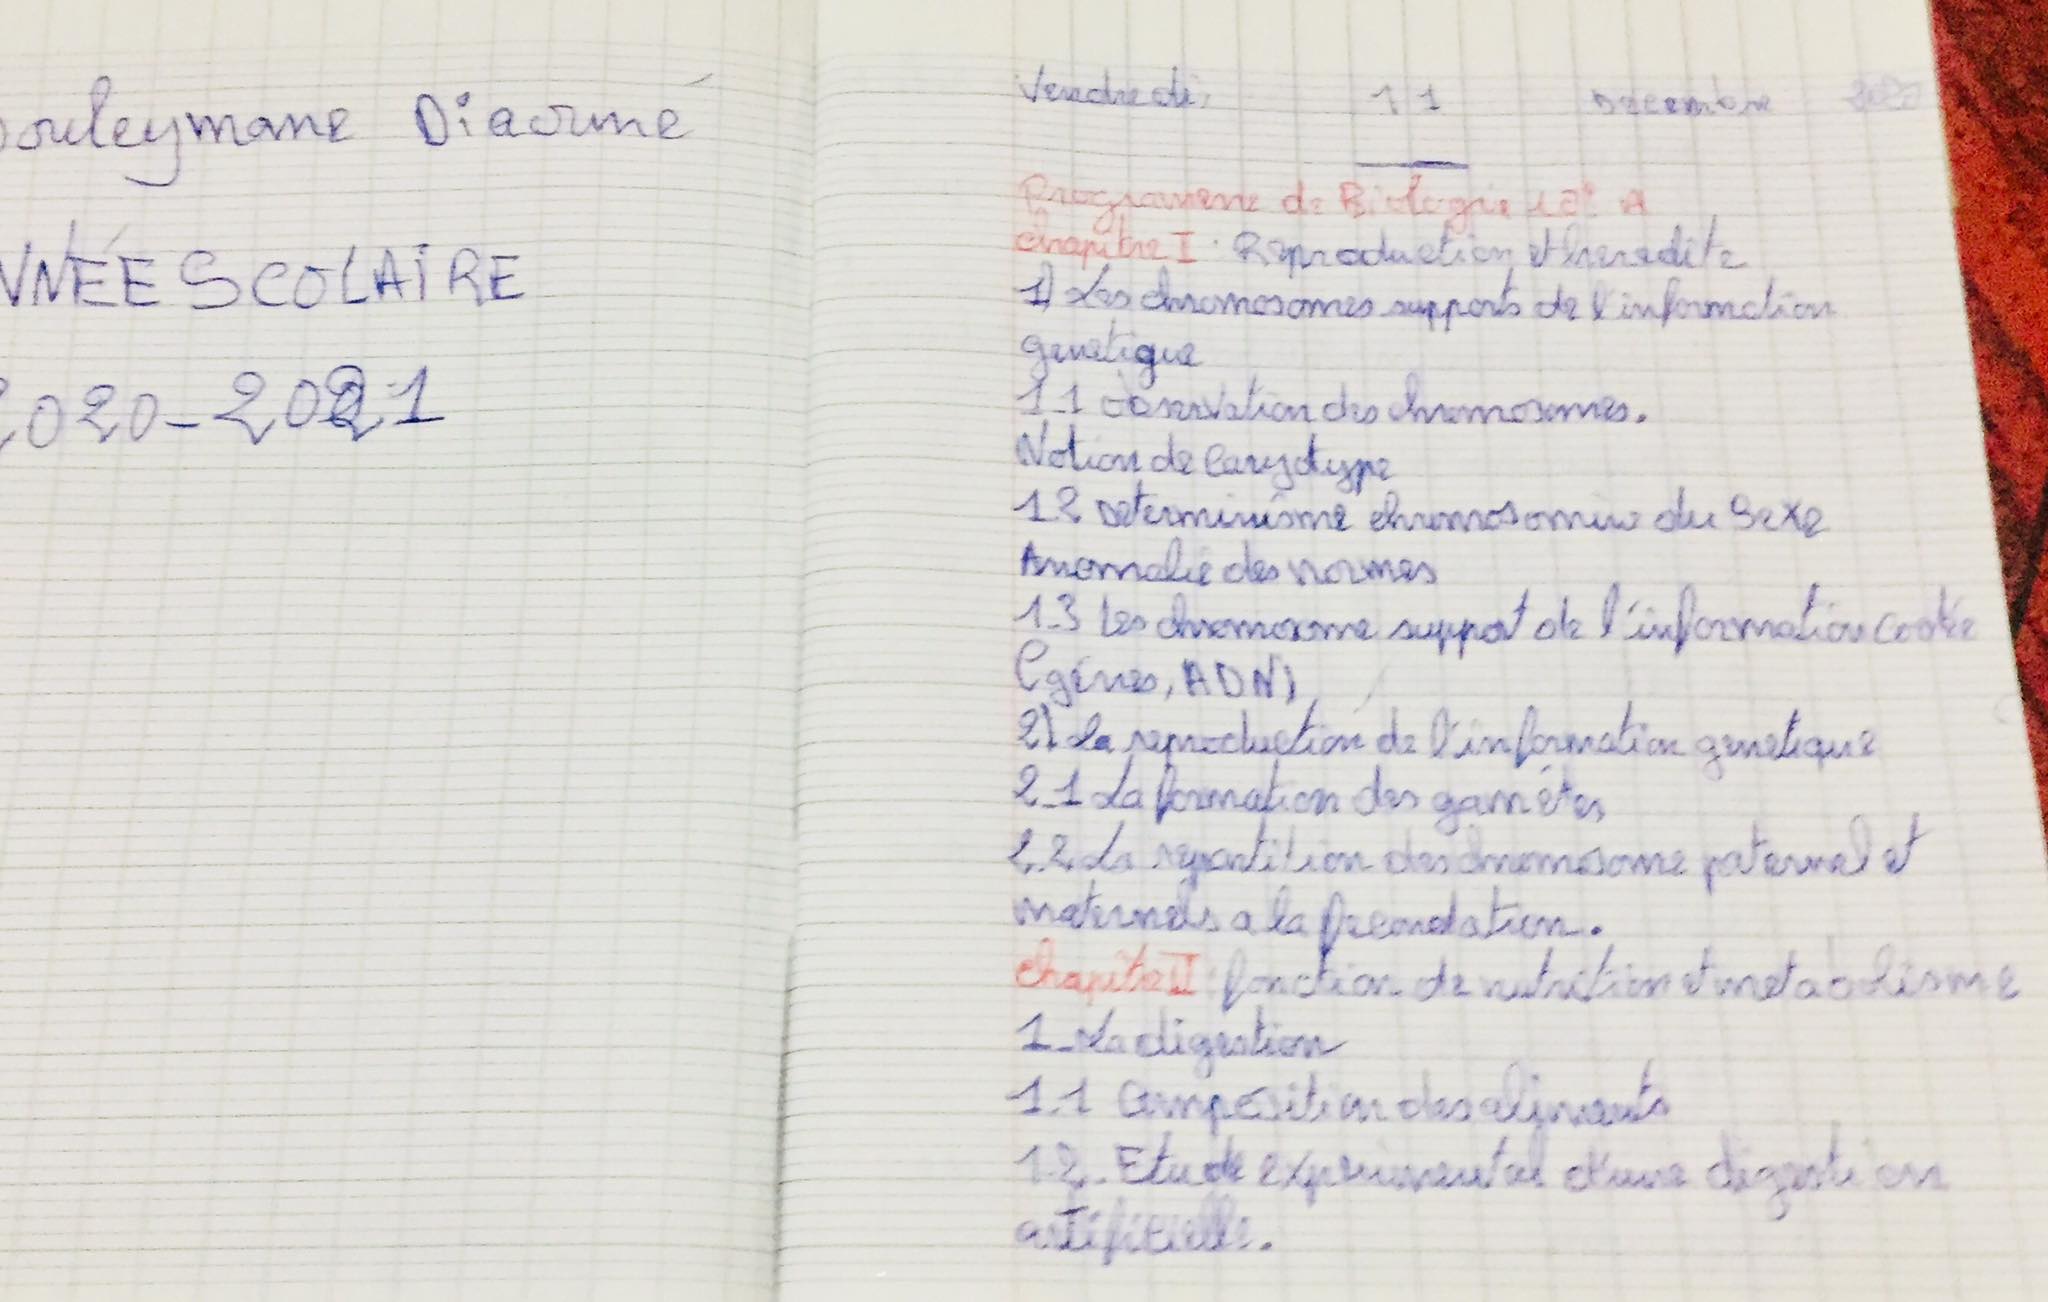 ouleymane Diaoumé
NNÉE SCOLAIRE
2020-2021
Vendredi, 11 Decembre 2020
Programme de Biologie 10e A
Chapitre I: Reproduction et heredite
1) Les chromosomes supports de l'information
genetique
1.1 observation des chromosomes.
Notion de Caryotype
1.2 Determinisme chromosomiw du Sexe
Anomalie des normes
1.3 Les chromosome support de l'information codée
(gènes, ADN)
2) La reproduction de l'information genetique
2.1 La formation des gamètes
2.2 La repartition des chromosome paternel et
maternels a la fecondation.
Chapitre II: fonction de nutrition et metabolisme
1-La digestion
1.1 Composition des aliments
1.2. Etude experimental d'une digestion
artificielle.